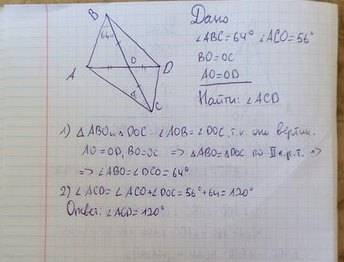 Дано
∠ABC=64° ∠ACO=56°
BO=OC
AO=OD
Найти: ∠ACD
B
64
A
O
D
C
1) △ABO и △DOC ∠AOB=∠DOC, т.к. они вертик.
AO=OD, BO=OC => △ABO=△DOC по II п.р.т. =>
=> ∠ABO=∠DCO=64°
2) ∠ACD=∠ACO+∠DOC=56°+64=120°
Ответ: ∠ACD=120°